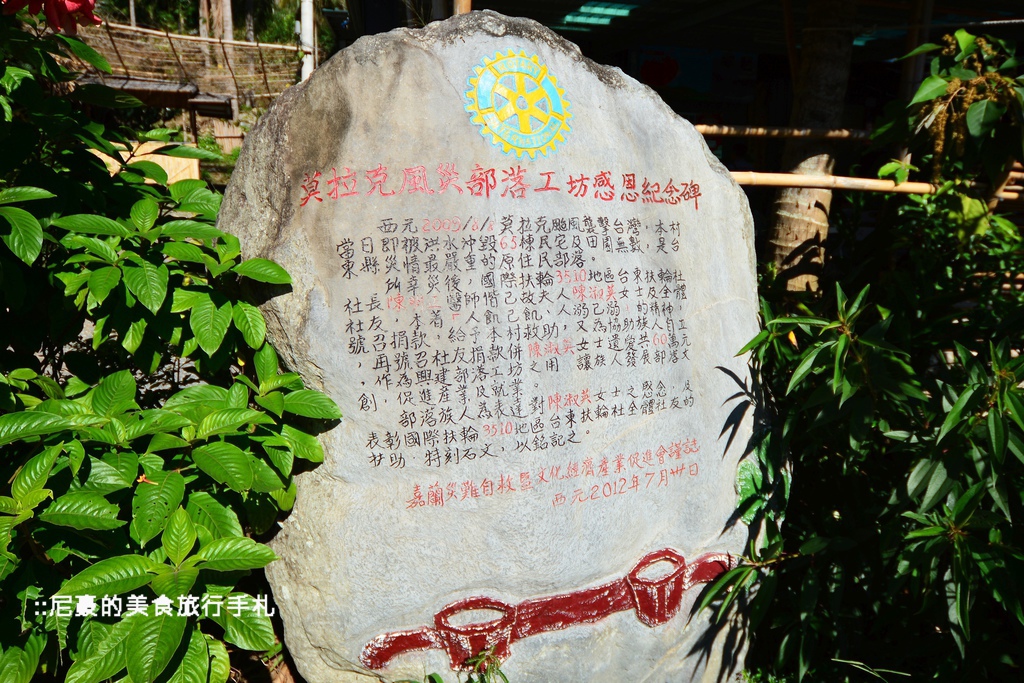 莫拉克風災部落工坊感恩紀念碑
西元2009/8/8莫拉克颱風襲擊台灣,本村
當日即被洪水沖毀65棟民宅及田園無數,是台
東縣災情最嚴重的原住民部落。
所幸災後,國際扶輪3510地區台東扶輪社
社長陳 醫師偕已故夫人陳淑英女士及全體
社友,本著「人飢己飢、人溺己溺」的精神,
號召捐款,給予本村救助,又為協助族人自立
,再號召社友捐款併陳淑英女士遺愛共60萬元
,作為興建部落工坊之用 讓族人發展部落文
創,促進產業及就業。
部落族人為表達對陳淑英女士之感念,及
表彰國際扶輪3510地區台東扶輪社全體社友的
扶助,特刻石文,以銘記之。
嘉蘭災難自救區文化經濟產業促進會謹誌
西元2012年7月卅日
::尼豪的美食旅行手札